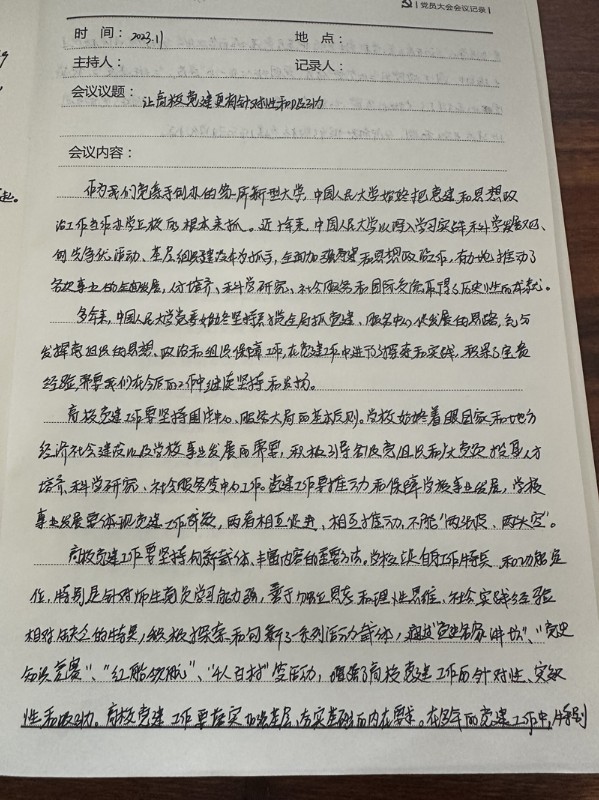 党员大会会议记录
时 间： 2023.11 地 点：
主持人： 记录人：
会议议题： 让高校党建更有针对性和吸引力
会议内容：
作为我们党亲手创办的第一所新型大学，中国人民大学始终把党建和思想政
治工作当作办学立校的根本来抓。近年来，中国人民大学以深入学习实践科学发展观、
创先争优活动、基层组织建设年为抓手，全面加强党建和思想政治工作，有力地推动了
各项事业的全面发展，人才培养、科学研究、社会服务和国际交流取得了历史性的成就。
多年来，中国人民大学党委始终坚持着眼全局抓党建、服务中心促发展的思路，充分
发挥党组织的思想、政治和组织保障工作，在党建工作中进行了探索和实践，积累了宝贵
经验，需要我们在今后的工作中继续坚持和发扬。
高校党建工作要坚持围绕中心、服务大局的基本原则。学校始终着眼国家和地方
经济社会建设以及学校事业发展的需要，积极引导各级党组织和广大党员投身人才
培养、科学研究、社会服务等中心工作。党建工作要推动和保障学校事业发展，学校
事业发展要体现党建工作成效，两者相互促进、相互推动，不能“两张皮、两层空”。
高校党建工作要坚持创新载体、丰富内容的重要方法。学校根据自身工作特点 和功能定
位，特别是针对师生党员学习能力强，善于 思考和理性思维、社会实践经验
相对缺乏的特点，积极探索和创新了一系列活动载体，通过“党建名家讲坛”、“党史
知识竞赛”、“红船领航”、“千人百村”等活动，增强了高校党建工作的针对性、实效
性和吸引力。高校党建工作要落实加强基层、夯实基础的内在要求。在多年的党建工作中，特别